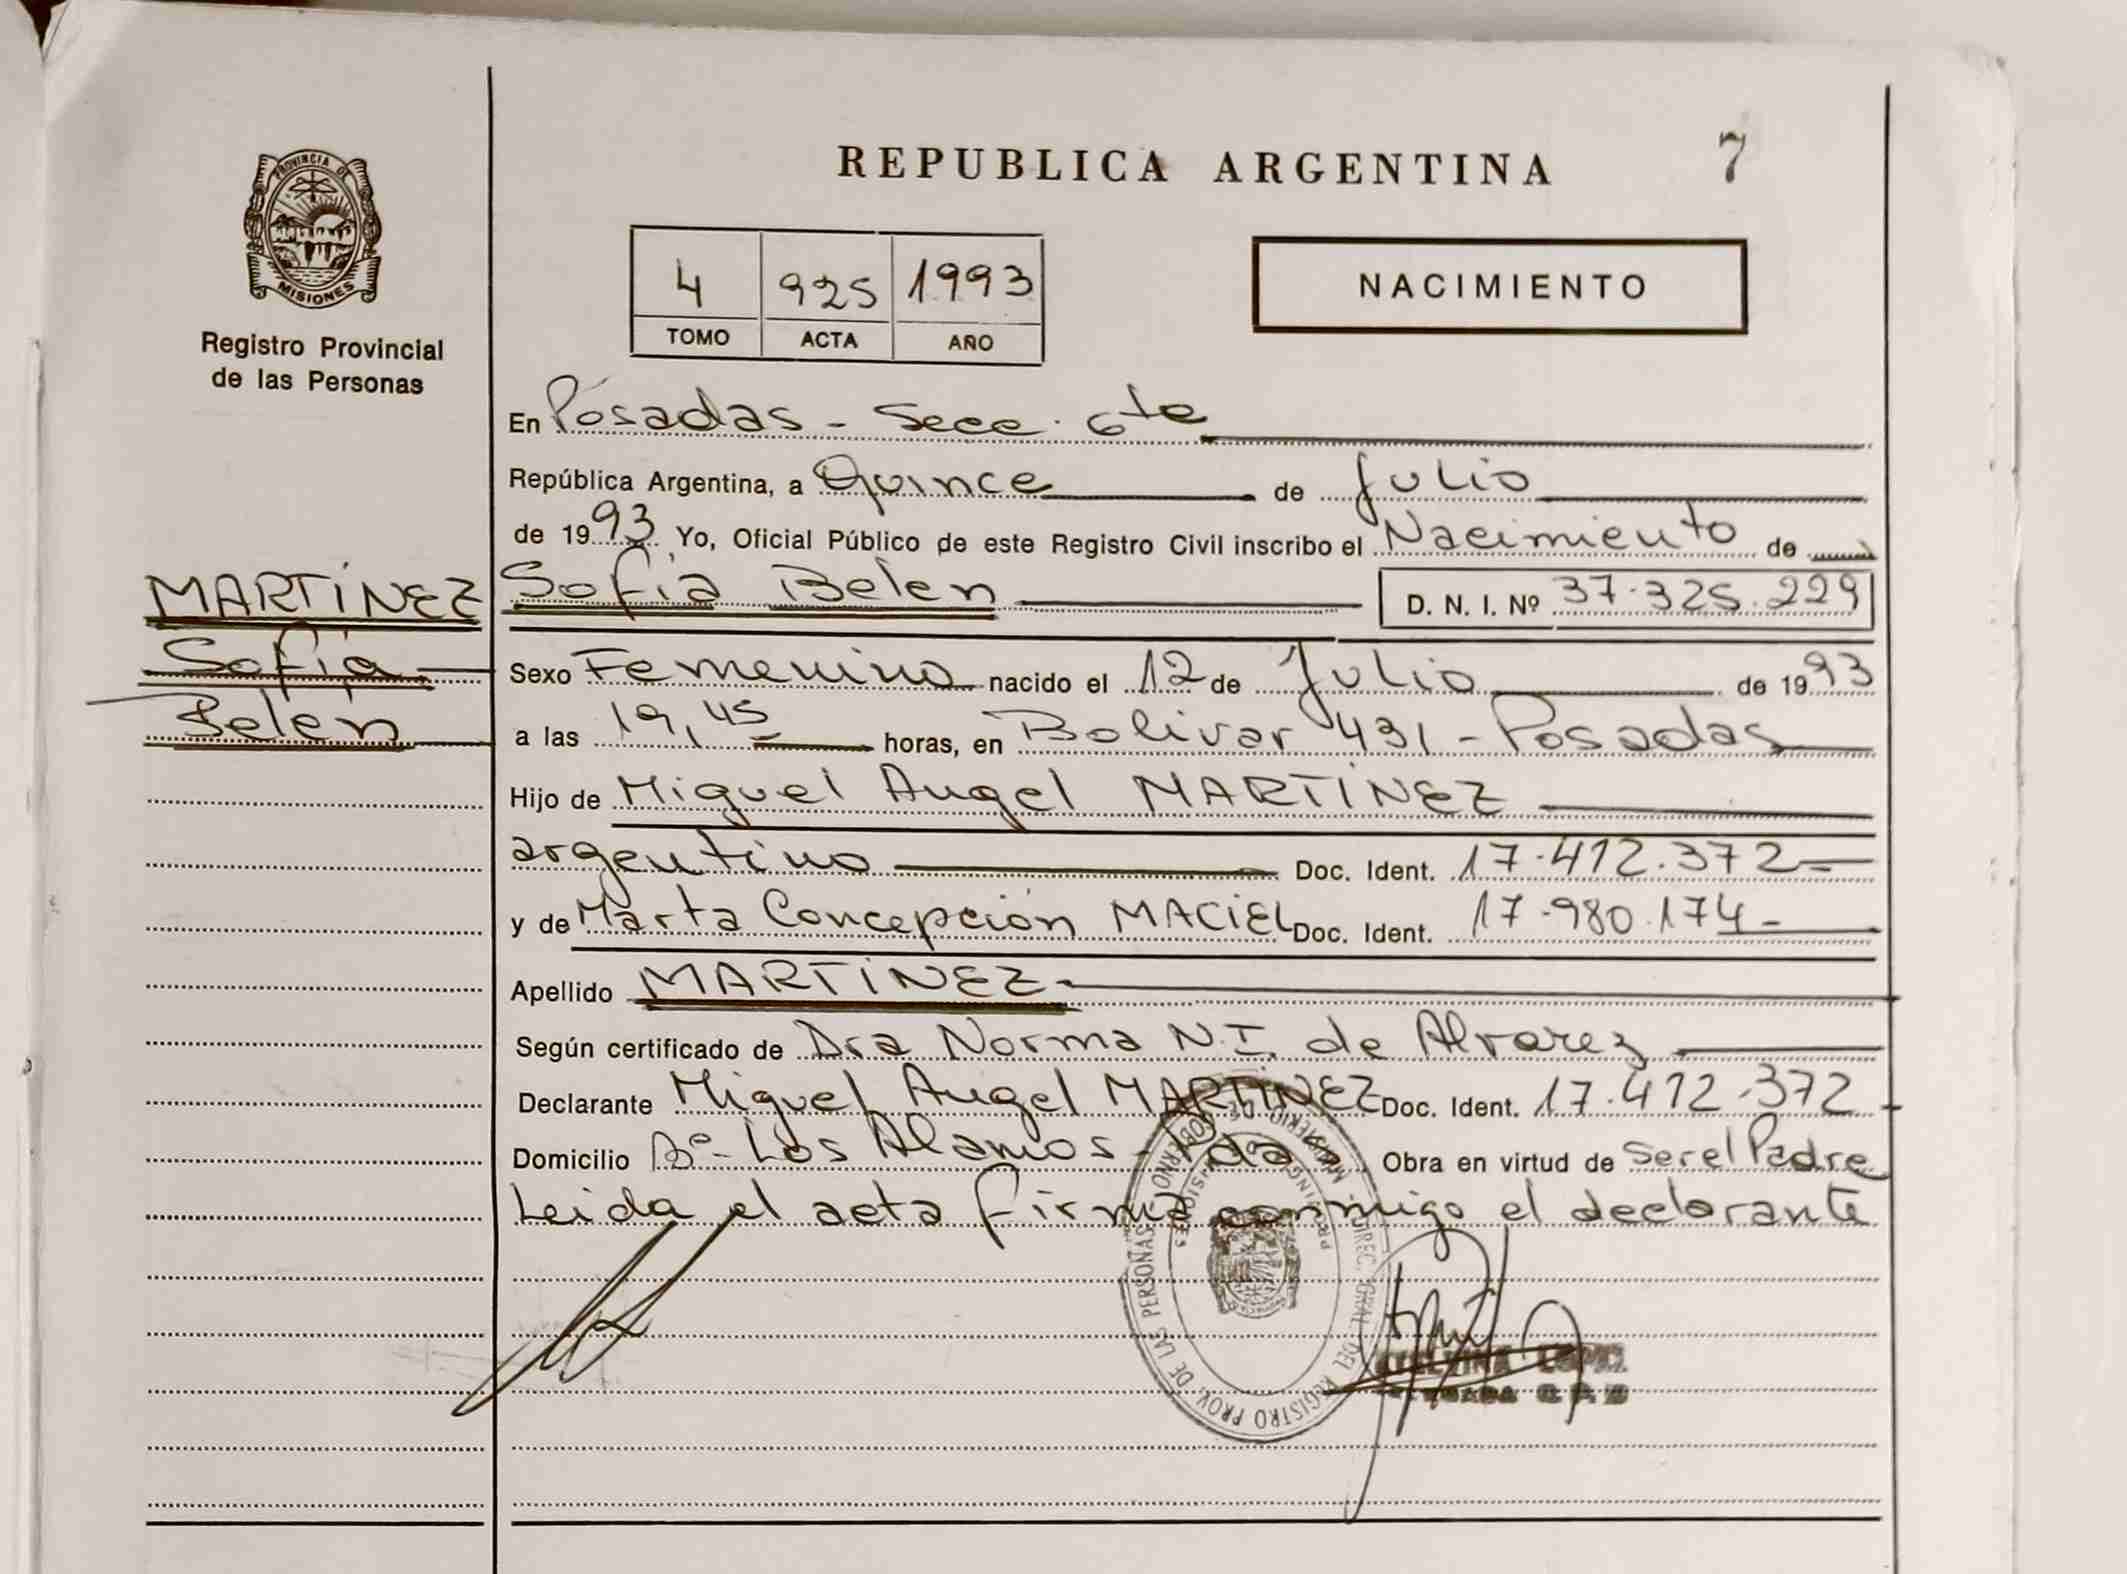 REPUBLICA ARGENTINA
7
PROVINCIA DE
MISIONES
Registro Provincial
de las Personas
4 925 1993
TOMO ACTA AÑO
NACIMIENTO
En Posadas - Secc. 6ta
República Argentina, a Quince de Julio
de 1993 Yo, Oficial Público de este Registro Civil inscribo el Nacimiento de
MARTÍNEZ
Sofía
Belén
Sofía Belen D. N. I. Nº 37.325.229
Sexo Femenino nacido el 12 de Julio de 1993
a las 19,45 horas, en Bolivar 431 - Posadas
Hijo de Miguel Angel MARTÍNEZ
argentino Doc. Ident. 17.412.372-
y de Marta Concepción MACIEL Doc. Ident. 17.980.174-
Apellido MARTÍNEZ-
Según certificado de Dra Norma N.I. de Alvarez
Declarante Miguel Angel MARTÍNEZ Doc. Ident. 17.412.372
Domicilio Bº- Los Alamos - Pdas Obra en virtud de Ser el Padre
Leida el acta firma conmigo el declarante
DIREC. GRAL. DEL REGISTRO PROV. DE LAS PERSONAS
LOPEZ